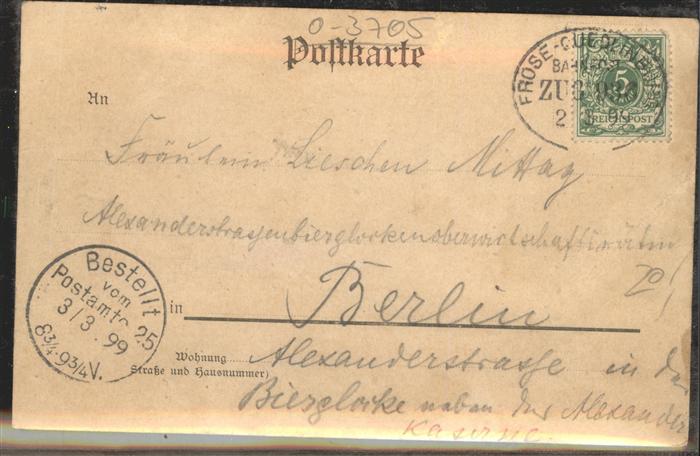 0-3705
Postkarte
FROSE-QUEDLINBURG
BAHNPOST
ZUG
5
REICHSPOST
An
Fräulein Lieschen Mittag
Alexanderstrassenbierglockenoberwirtschaftsrätin
Bestellt
vom
Postamte 25
3/3.99
8¾-9¾V.
in Berlin
Wohnung
(Straße und Hausnummer)
Alexanderstrasse in der
Bierglocke neben der Alexander
Kaserne.